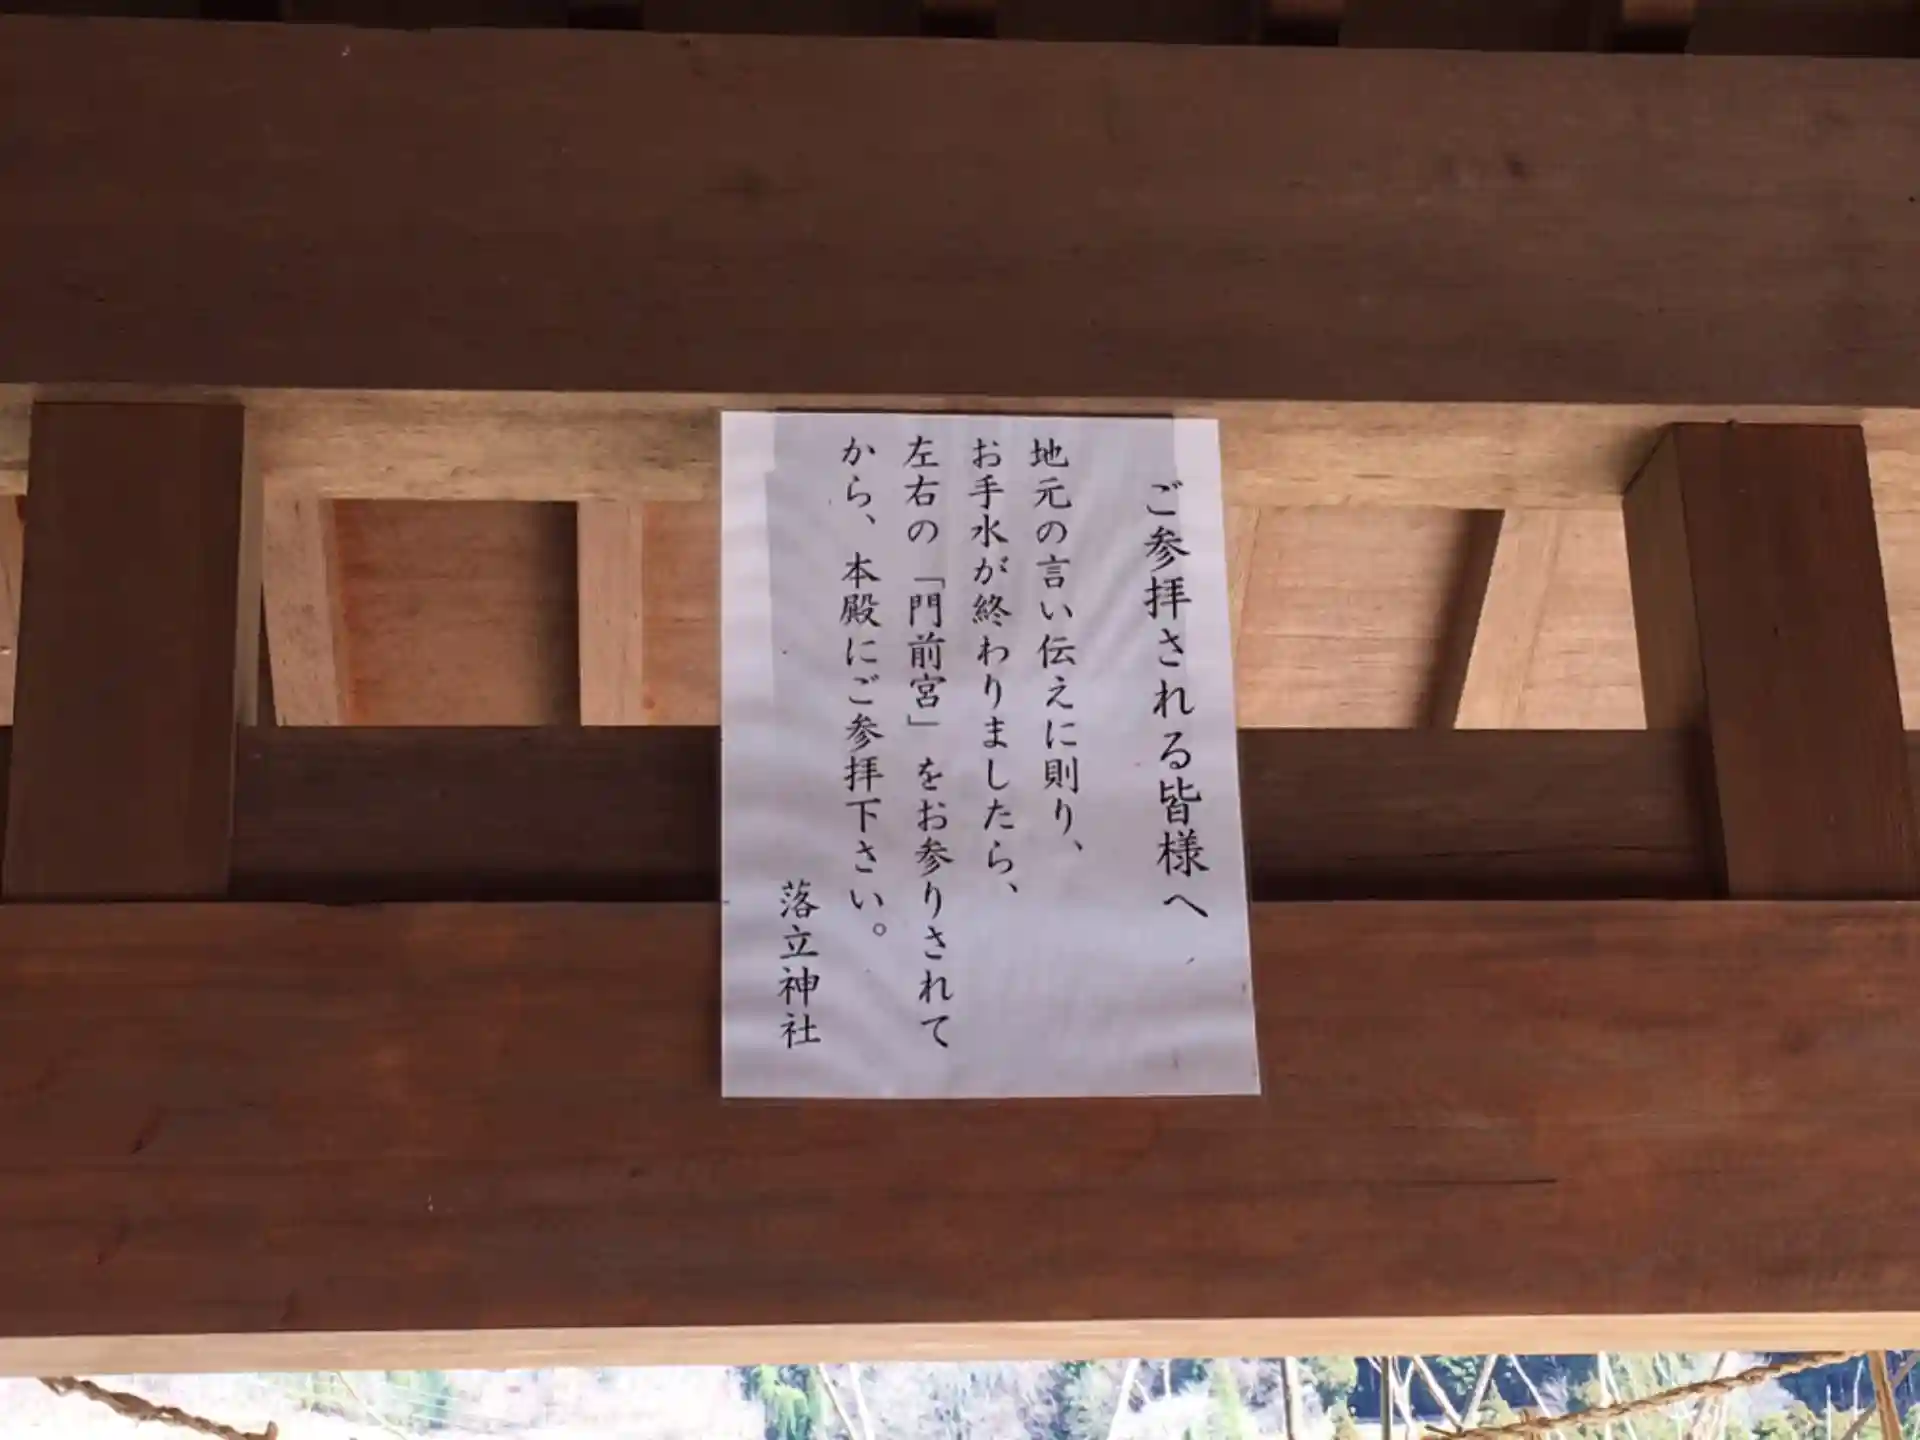 ご参拝される皆様へ
地元の言い伝えに則り、
お手水が終わりましたら、
左右の「門前宮」をお参りされて
から、本殿にご参拝下さい。
落立神社